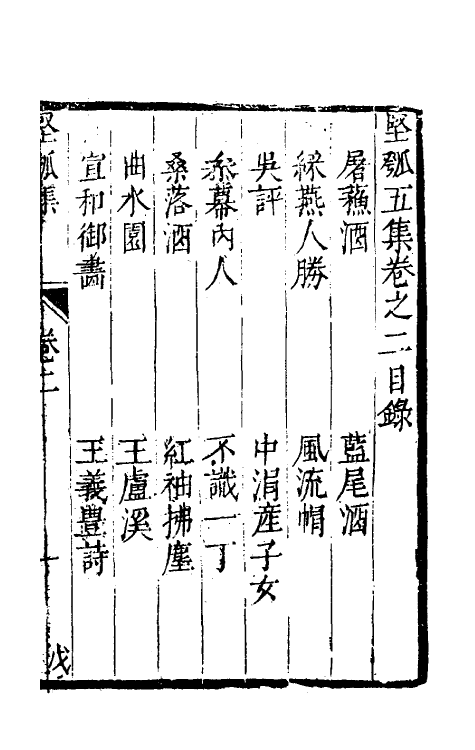 堅瓠五集卷之二目錄
屠蘓酒 藍尾酒
綵燕人勝 風流帽
吳評 中涓産子女
幕内人 不識一丁
桑落酒 紅袖拂塵
曲水園 王盧溪
宣和御畫 王義豊詩
堅瓠集 卷二 一